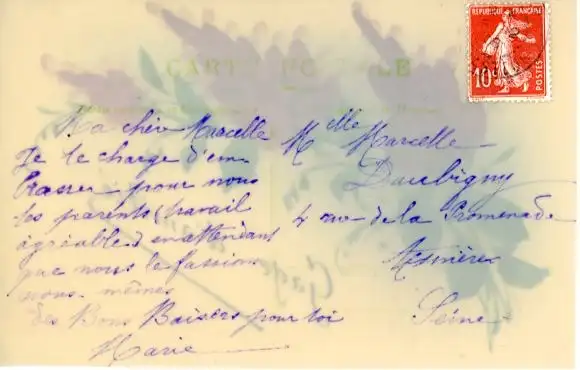 RÉPUBLIQUE FRANÇAISE
10c
POSTES
CARTE POSTALE
Ma chère Marcelle
Je te charge d'em-
brasser pour nous
tes parents (travail
agréable) en attendant
que nous le fassions
nous-mêmes
des Bons Baisers pour toi
Marie
Mlle Marcelle
Daubigny
4 rue de la Promenade
Asnières
Seine